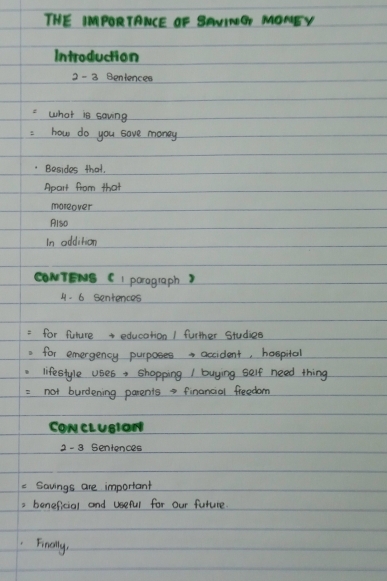 THE IMPORTANCE OF SAVING MONEY
Introduction
2 - 3 Sentences
= what is saving
= how do you save money
• Besides that.
Apart from that
moreover
Also
In addition
CONTENS ( 1 paragraph )
4 - 6 Sentences
= for future → education / further studies
= for emergency purposes → accident , hospital
= lifestyle uses → shopping / buying self need thing
= not burdening parents → financial freedom
CONCLUSION
2 - 3 Sentences
= Savings are important
= beneficial and useful for our future.
• Finally,